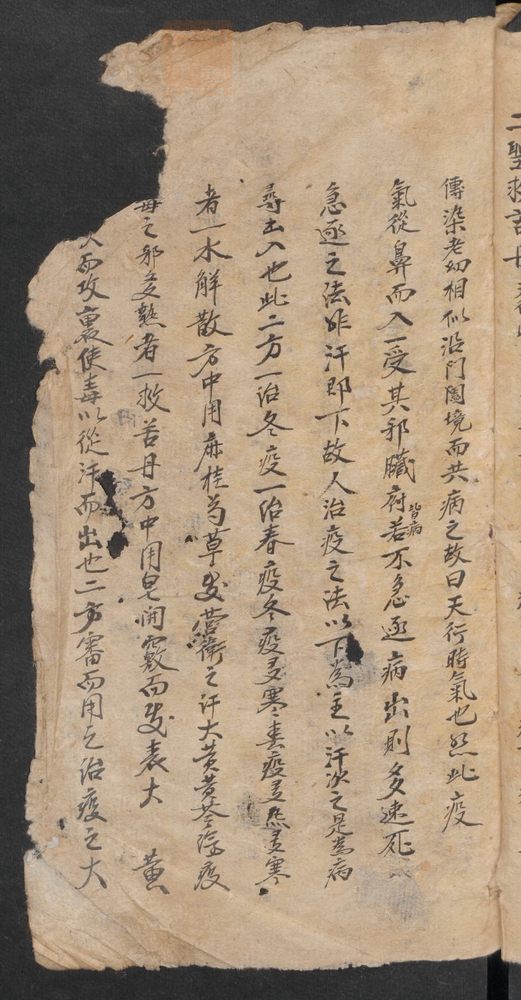 二聖救
傳染老幼相似沿門闔境而共病之故曰天行時氣也然此疫
氣從鼻而入一受其邪臟府皆病若不急逐病出則多速死
急逐之法非汗即下故人治疫之法以下為主以汗次之是為病
尋出入也此二方一治冬疫一治春疫冬疫多寒春疫多熱多寒
者一水解散方中用麻桂芍草发營衛之汗大黄黄芩瀉疫
毒之邪多熱者一救苦丹方中用皂開竅而发表大黄
而攻裏使毒以從汗而出也二方審而用之治疫之大